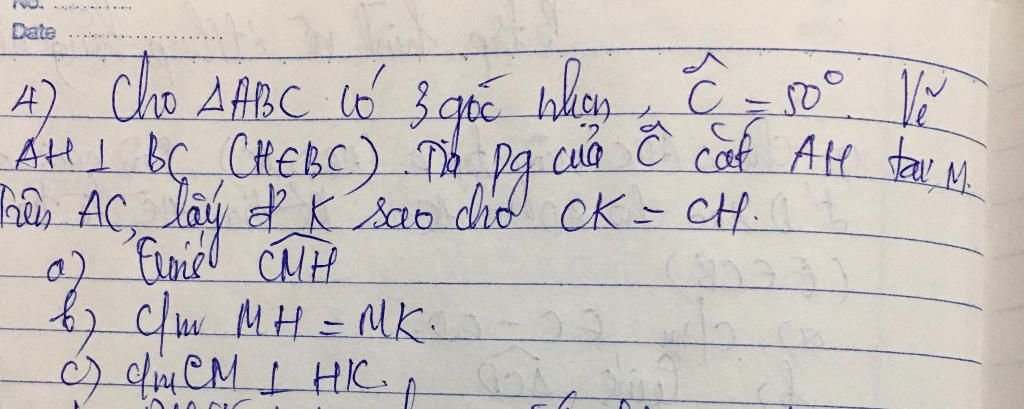 No.
Date
4) Cho ΔABC có 3 góc nhọn, Ĉ = 50°. Vẽ
AH ⊥ BC (H∈BC). Tia pg của Ĉ cắt AH tại M.
Trên AC, lấy đ' K sao cho CK = CH.
a) Tính CMH
b) c/m MH = MK.
c) c/m CM ⊥ HK.